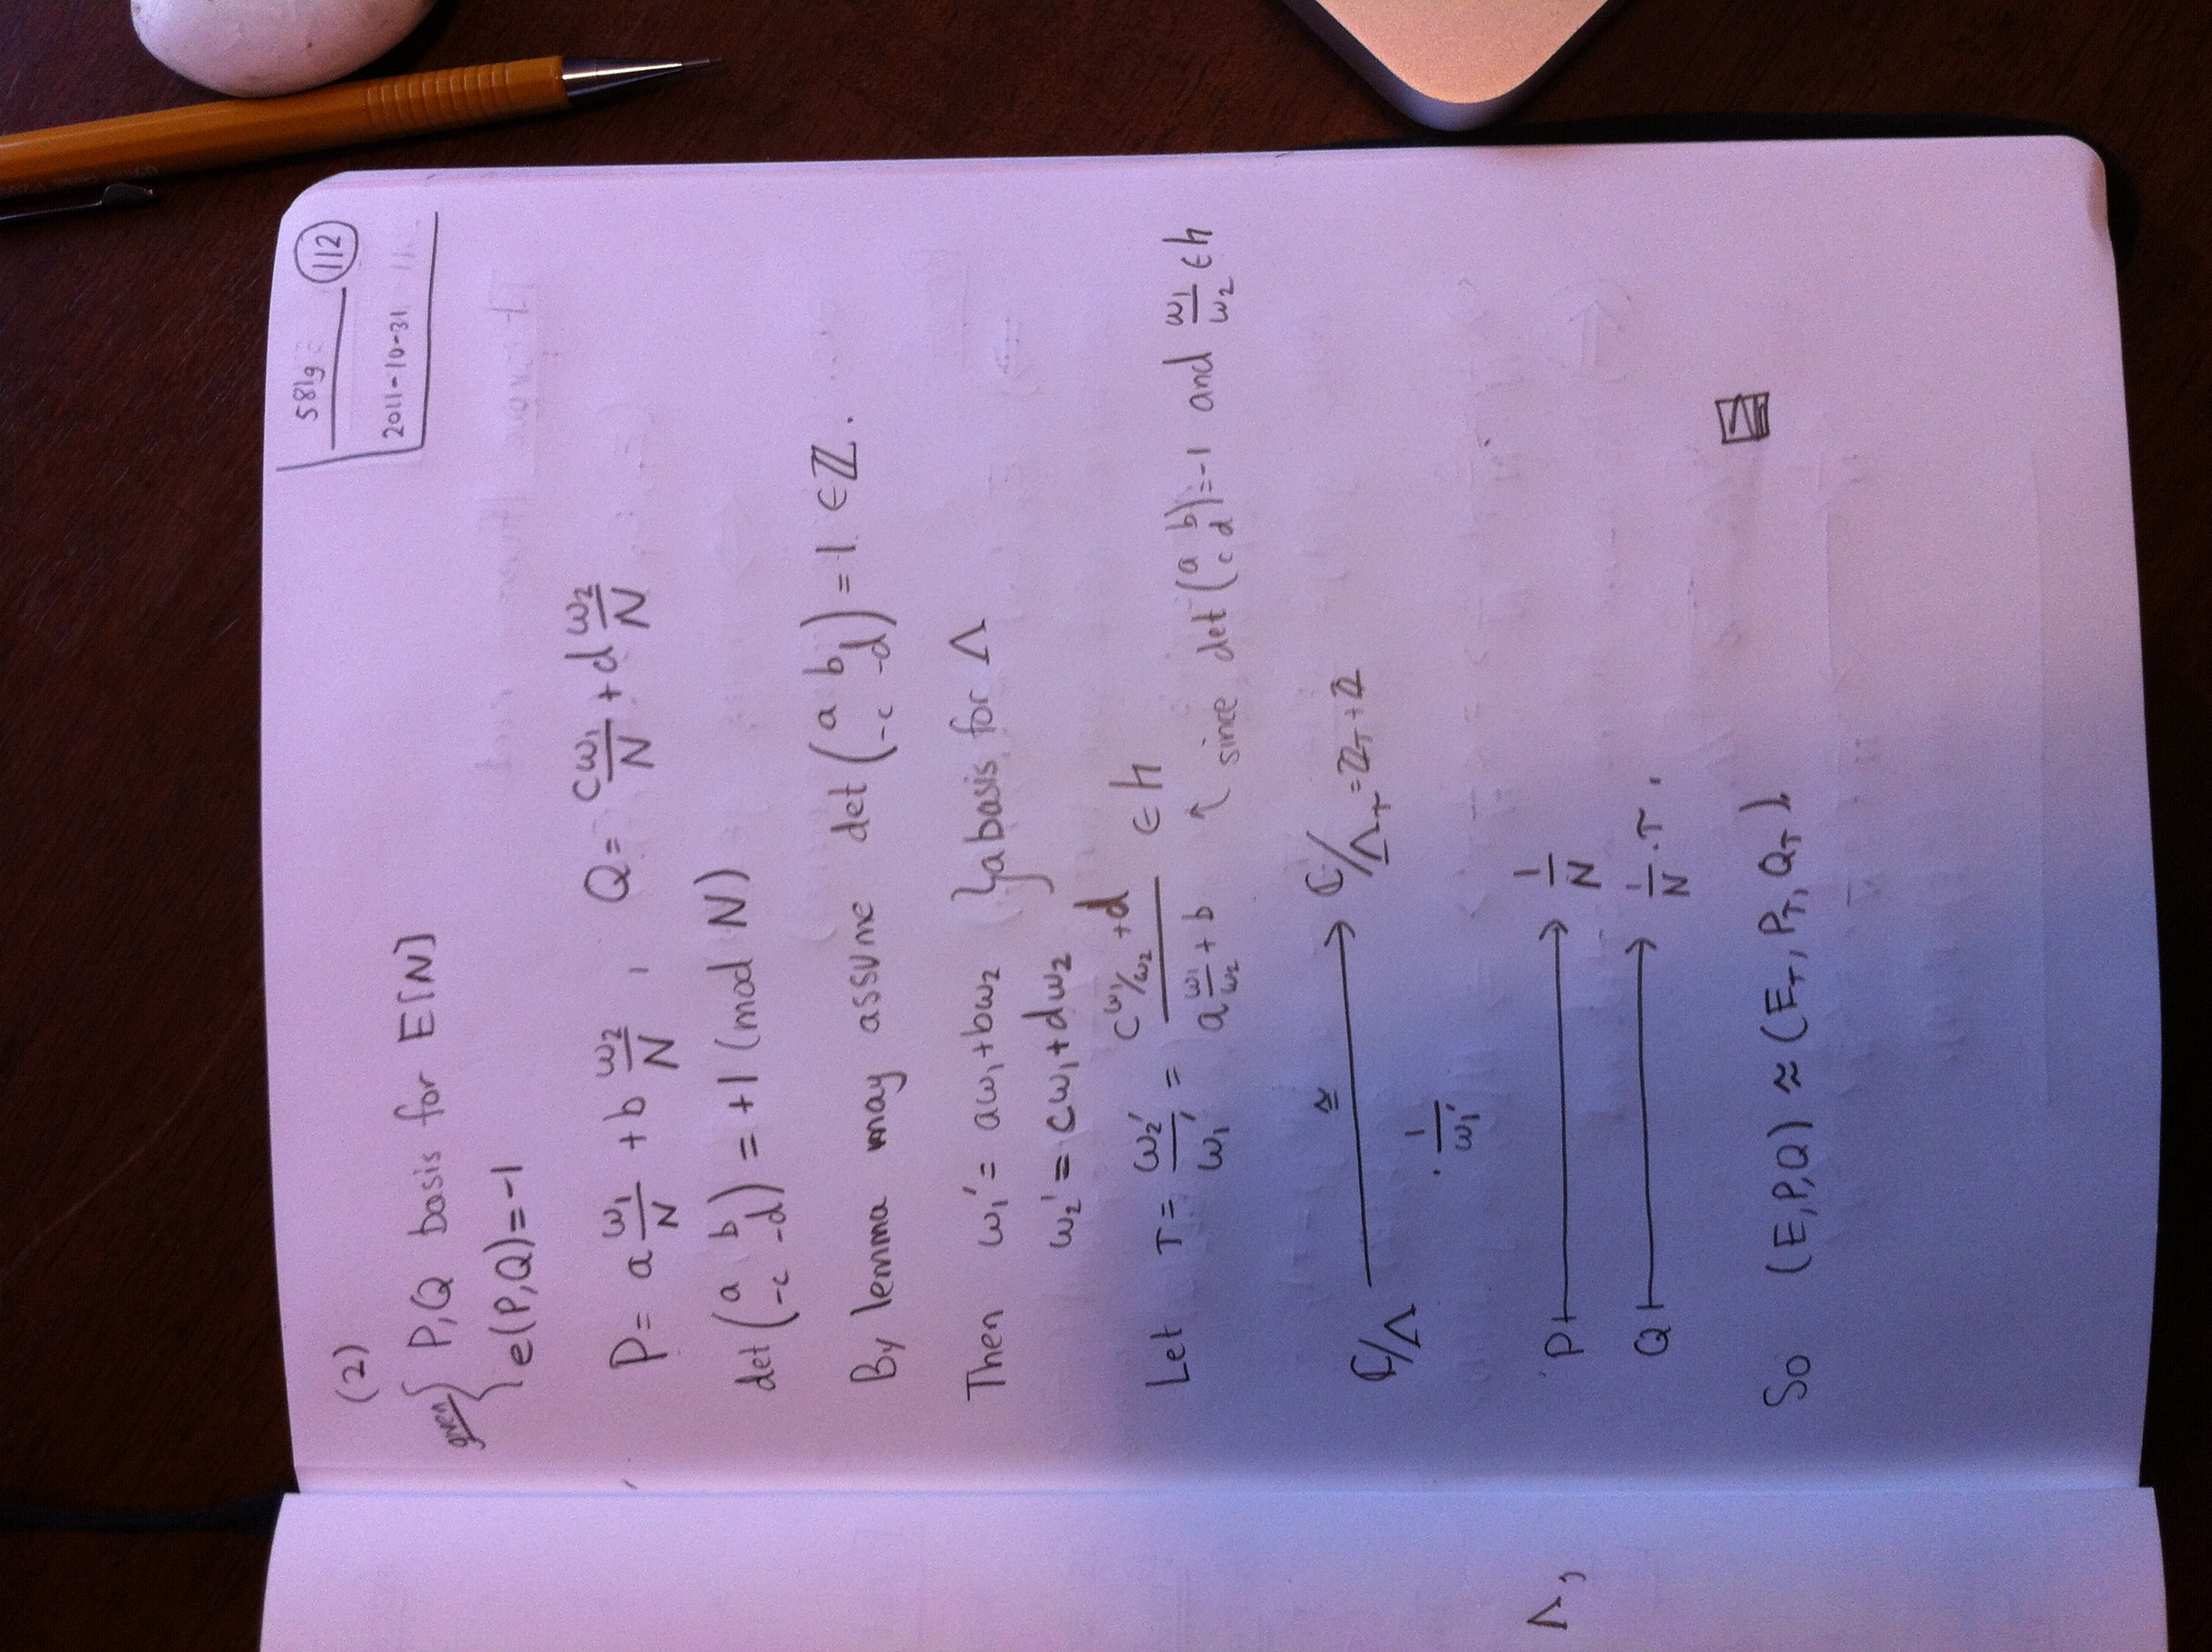 581g (112)
2011-10-31
(2)
given { P,Q basis for E[N]
e(P,Q)=-1
P = a ω₁/N + b ω₂/N , Q = cω₁/N + d ω₂/N
det (a b; -c -d) = +1 (mod N)
By lemma may assume det (a b; -c -d) = 1 ∈ ℤ.
Then ω₁' = aω₁+bω₂ } a basis for Λ
ω₂' = cω₁+dω₂
Let τ = ω₂'/ω₁' = (c ω₁/ω₂ + d)/(a ω₁/ω₂ + b) ∈ h
↑ since det (a b; c d) = -1 and ω₁/ω₂ ∈ h
ℂ/Λ ≅ ⟶ ℂ/Λ_τ = ℤτ+ℤ
· 1/ω₁'
P ⟼ 1/N
Q ⟼ 1/N · τ.
So (E,P,Q) ≈ (E_τ, P_τ, Q_τ).
Λ,